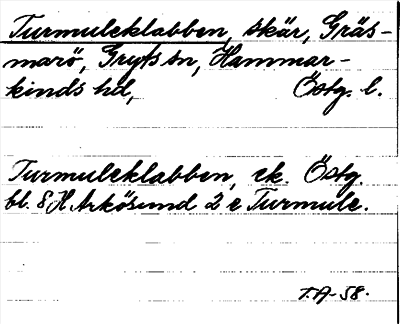 Turmuleklabben, skär, Gräs-
marö, Gryts sn, Hammar-
kinds hd, Östg. l.
Turmuleklabben, ek. Östg.
bl. 8 H Arkösund 2 e Turmule.
T.A-58.